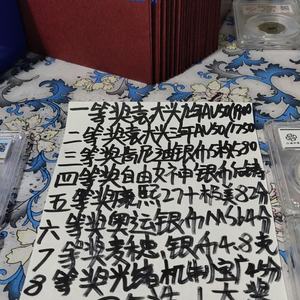 一等奖袁大头九年AU50/1900
二等奖袁大头三年AU50/1750
三等奖肯尼迪银币5枚680
四等奖自由女神银币
五等奖康熙27十枚美82分
六等奖奥运银币
7等奖麦穗银币4.8克
8等奖光绪机制宝广
大奖